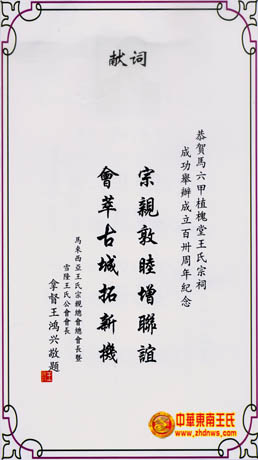 献词
恭賀馬六甲植槐堂王氏宗祠
成功舉辦成立百卅周年紀念
宗親敦睦增聯誼
會萃古城拓新機
馬來西亞王氏宗親總會總會長暨
雪隆王氏公會會長
拿督王鴻兴敬題
中華東南王氏
www.zhdnws.com